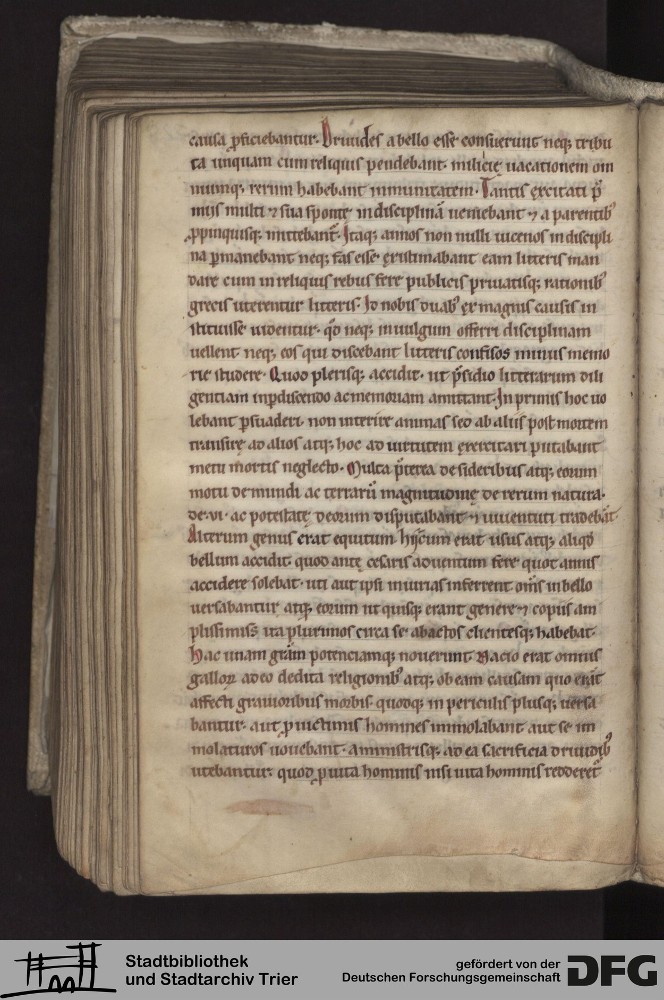 causa ꝓficiebantur. Druides a bello esse consuerunt neq; tribu
ta unquam cum reliquis pendebant. milicię uacationem om
niumq; rerum habebant inmunitatem. Tantis excitati p̄
miis multi ⁊ sua sponte in disciplinā ueniebant ⁊ a parentib᾽
ꝓpinquisq; mittebant᷑. Itaq; annos non nulli uicenos in discipli
na ꝑmanebant neq; fas esse existimabant eam litteris man
dare cum in reliquis rebus fere publicis priuatisq; rationib᾽
grecis uterentur litteris. Id nobis duab᾽ ex magnis causis in
stituisse uidentur. qd̄ neq; in uulgum offerri disciplinam
uellent neq; eos qui discebant litteris confisos minus memo
rie studere. Quod plerisq; accidit. ut p̄sidio litterarum dili
gentiam in ꝑdiscendo ac memoriam amittant. In primis hoc uo
lebant ꝑsuaderi. non interire animas sed ab aliis post mortem
transire ad alios atq; hoc ad uirtutem exercitari putabant
metu mortis neglecto. Multa p̄terea de sideribus atq; eorum
motu de mundi ac terrarū magnitudine de rerum natura.
de ui. ac potestate deorum disputabant ⁊ iuuentuti tradebāt.
Alterum genus erat equitum. Hii cum erat usus atq; aliqd̄
bellum accidit. quod ante cesaris aduentum fere quot annis
accidere solebat. uti aut ipsi iniurias inferrent om̄s in bello
uersabantur atq; eorum ut quisq; erant genere ⁊ copiis am
plissimis. ita plurimos circa se abactos clientesq; habebat.
Hac unam gr̄am potenciamq; nouerunt. Nacio erat omnis
galloꝝ adeo dedita religionib᾽ atq; ob eam causam quo erāt
affecti grauioribus morbis quodq; in periculis plusq; uersa
bantur. aut ꝓ uictimis homines immolabant aut se im
molaturos uouebant. aministrisq; ad ea sacrificia druidib᾽
utebantur. quod ꝓ uita hominis nisi uita hominis redderet᷑
Stadtbibliothek
und Stadtarchiv Trier
gefördert von der
Deutschen Forschungsgemeinschaft
DFG